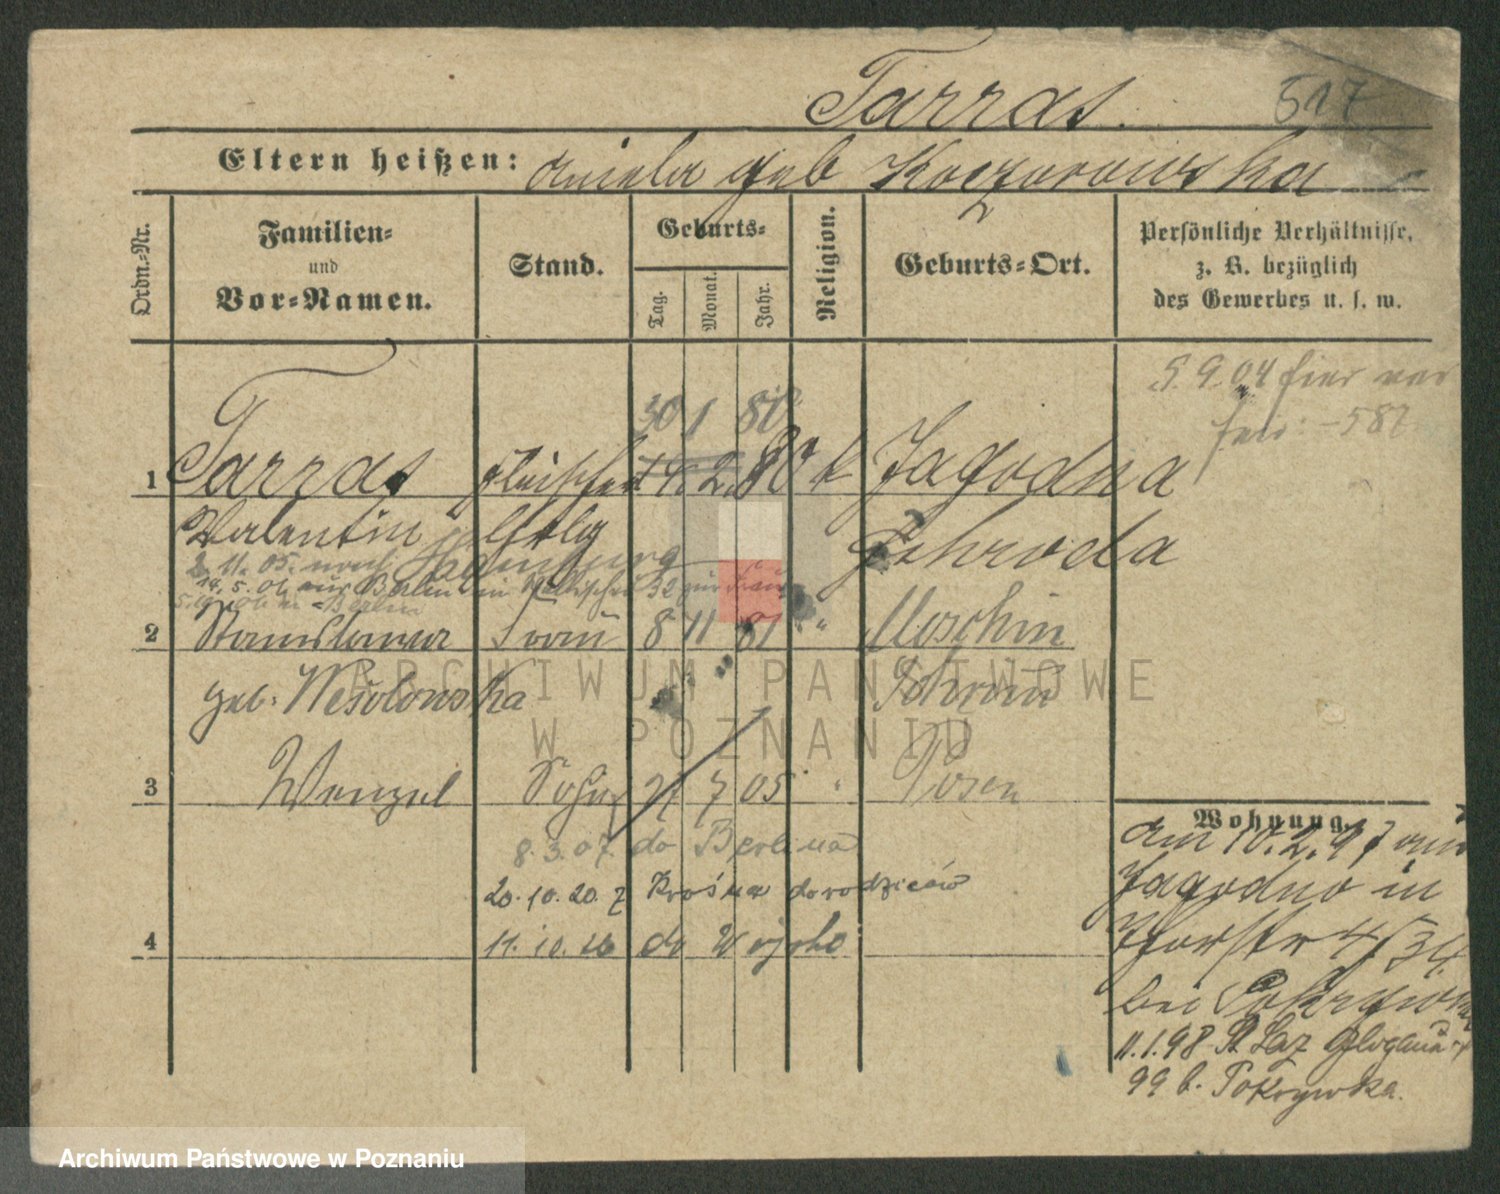 Tarras.
517
Eltern heißen: Aniela geb Koczorowska
Ordn.-Nr.
Familien-
und
Vor-Namen.
Stand.
Geburts-
Tag.
Monat.
Jahr.
Religion.
Geburts-Ort.
Persönliche Verhältnisse,
z. B. bezüglich
des Gewerbes u. s. w.
5.9.04 hier
587
30 1 80
1 Tarras Fleischer 14. 2. 80 k Jagodna
Valentin Schroda
2. 11. 05. nach Hamburg
14. 5. 06 aus Berlin in 32 zur Frau
5. 06 n. Berlin
2 Stanislawa Frau 8 11 81 " Moschin
geb. Wesolowska Schrimm
3 Wenzel Sohn 27 7 05 " Posen
8. 3. 07. do Berlina
20. 10. 20. z Krosna do rodziców
4 11. 10. 26 do Wojska
Wohnung.
am 10. 2. 97 aus
Jagodno in
4/5 34.
bei Pokrywka
11.1.98 St Laz Glogauer
99 b. Pokrywka.
ARCHIWUM PAŃSTWOWE
W POZNANIU
Archiwum Państwowe w Poznaniu